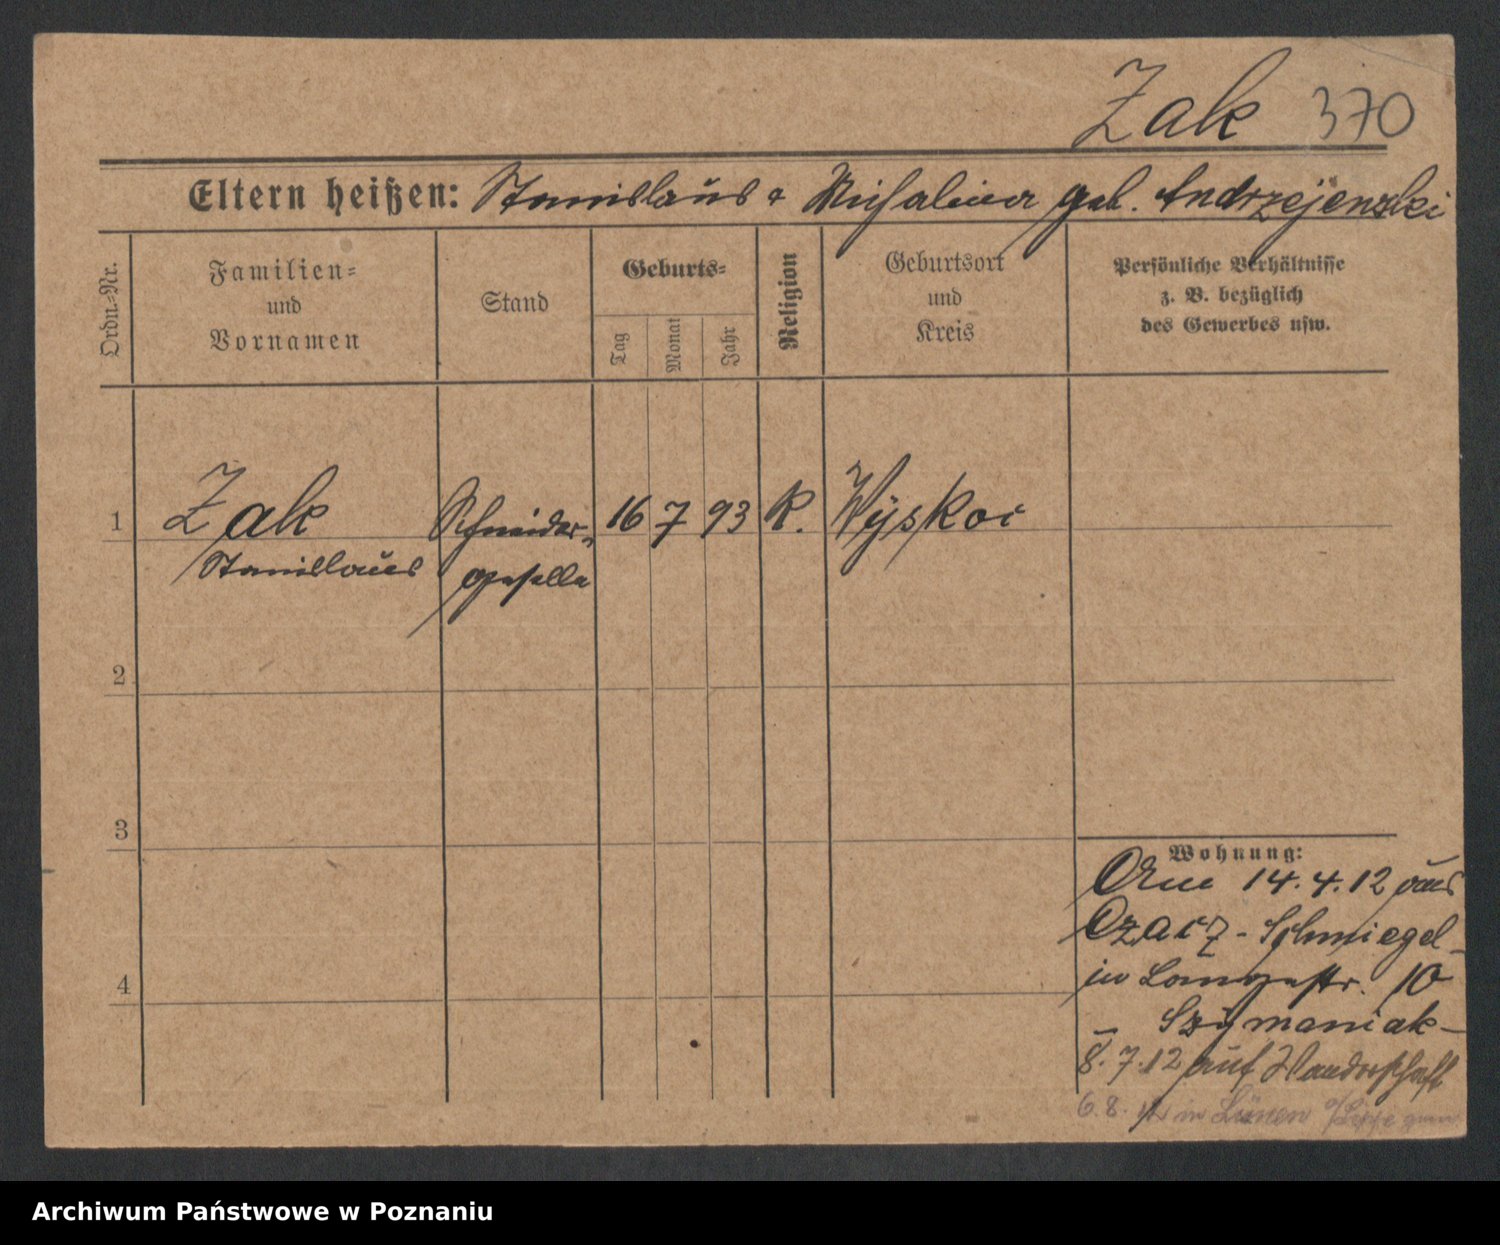 Zak 370
Eltern heißen: Stanislaus & Michalina geb. Andrzejewski
Ordn.=Nr.
Familien=
und
Vornamen
Stand
Geburts=
Tag
Monat
Jahr
Religion
Geburtsort
und
Kreis
Persönliche Verhältnisse
z. B. bezüglich
des Gewerbes usw.
1 Zak Schneider- 16 7 93 K. Wyskoc
Stanislaus geselle
2
3
4
Wohnung:
Am 14.4.12 aus
Czacz - Schmiegel
in Langestr. 10
Szymaniak -
8.7.12 auf Wanderschaft
6.8.12 in Lünen a/Lippe gem
Archiwum Państwowe w Poznaniu